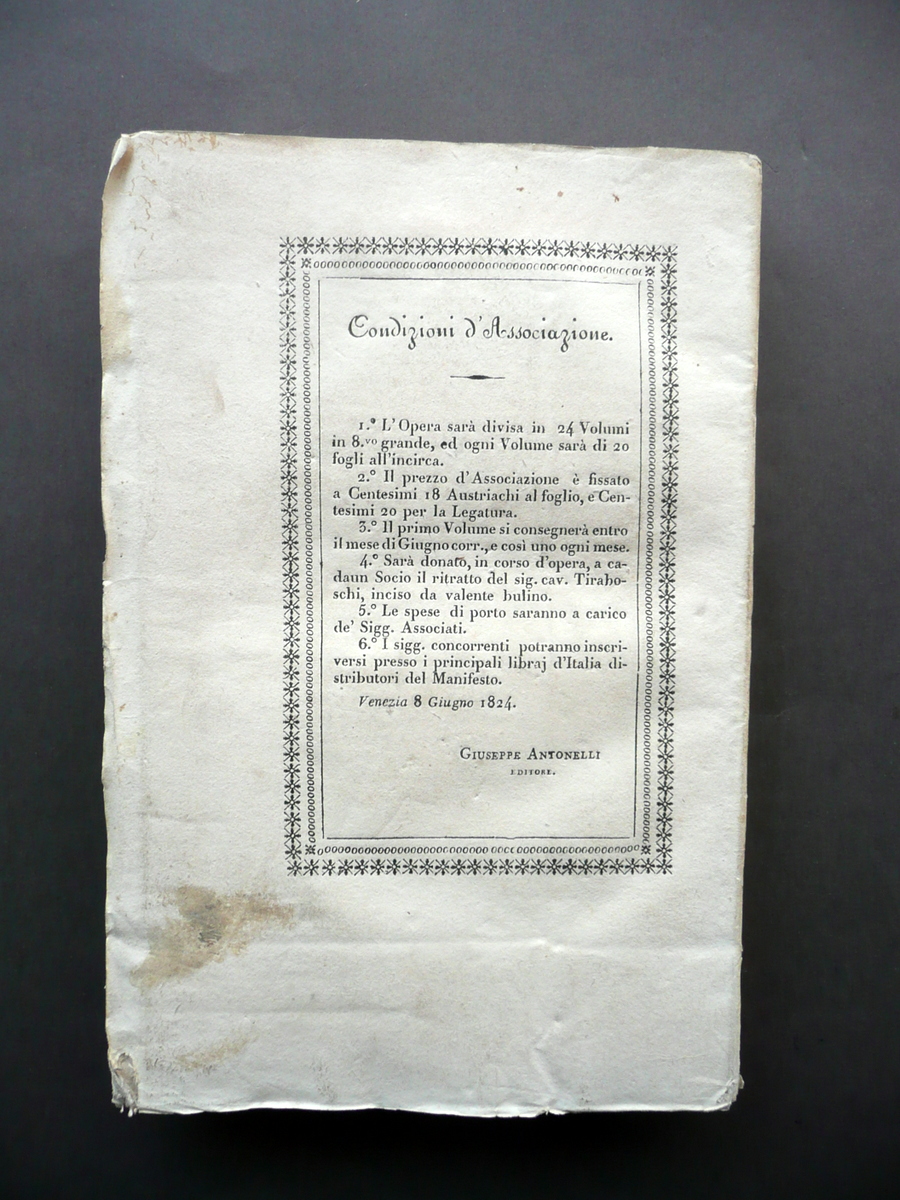 Condizioni d'Associazione.
1.º L'Opera sarà divisa in 24 Volumi
in 8.vo grande, ed ogni Volume sarà di 20
fogli all'incirca.
2.º Il prezzo d'Associazione è fissato
a Centesimi 18 Austriachi al foglio, e Cen-
tesimi 20 per la Legatura.
3.º Il primo Volume si consegnerà entro
il mese di Giugno corr., e così uno ogni mese.
4.º Sarà donato, in corso d'opera, a ca-
daun Socio il ritratto del sig. cav. Tirabo-
schi, inciso da valente bulino.
5.º Le spese di porto saranno a carico
de' Sigg. Associati.
6.º I sigg. concorrenti potranno inscri-
versi presso i principali libraj d'Italia di-
stributori del Manifesto.
Venezia 8 Giugno 1824.
GIUSEPPE ANTONELLI
EDITORE.